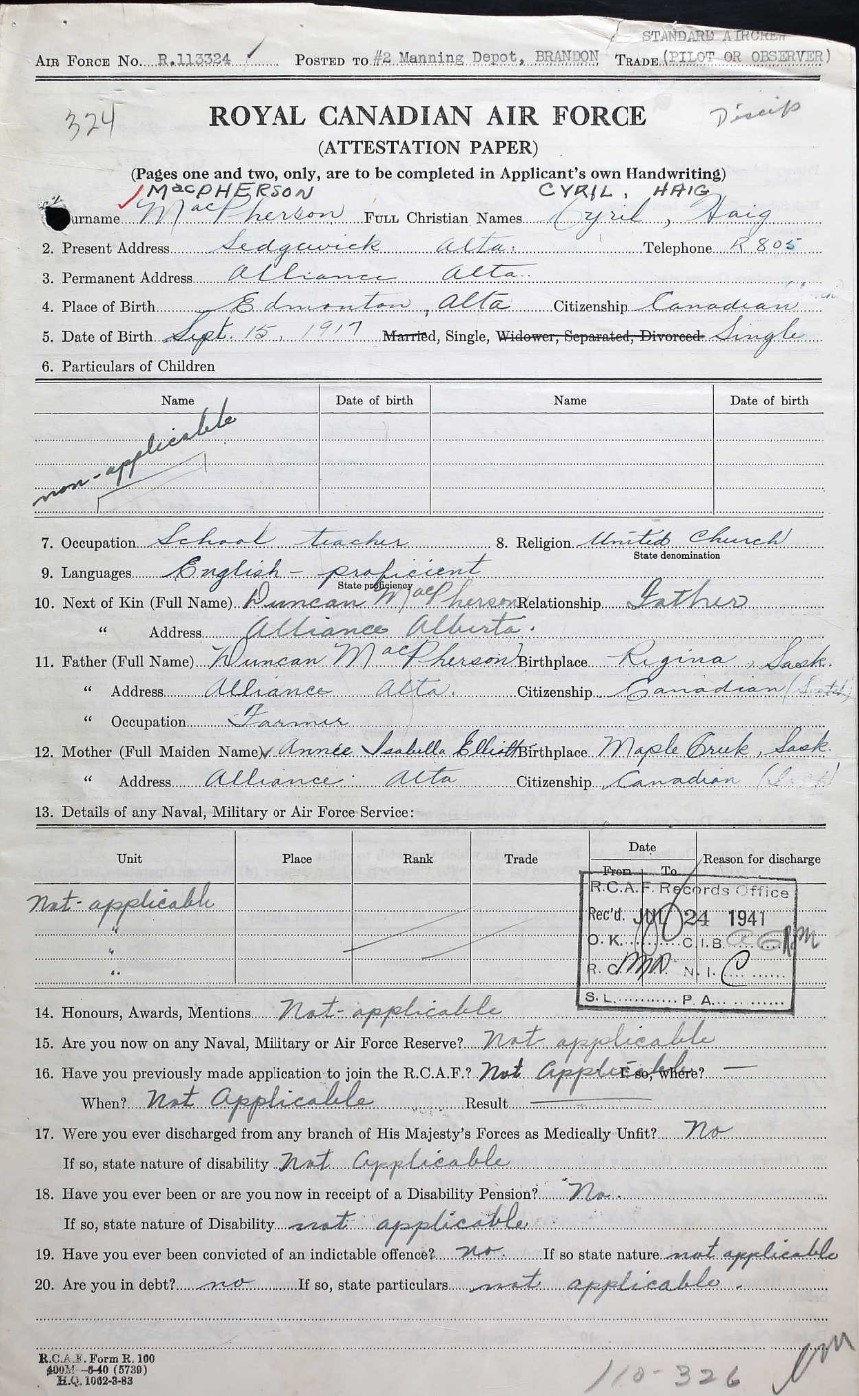 STANDARD AIRCREW
AIR FORCE No. R.113324 POSTED TO #2 Manning Depot, BRANDON TRADE (PILOT OR OBSERVER)
324
ROYAL CANADIAN AIR FORCE
Discip
(ATTESTATION PAPER)
(Pages one and two, only, are to be completed in Applicant's own Handwriting)
MacPHERSON CYRIL, HAIG
urname MacPherson FULL Christian Names Cyril, Haig
2. Present Address Sedgewick Alta. Telephone R 805
3. Permanent Address Alliance Alta.
4. Place of Birth Edmonton, Alta Citizenship Canadian
5. Date of Birth Sept. 15, 1917 Married, Single, Widower, Separated, Divorced Single
6. Particulars of Children
Name Date of birth Name Date of birth
non-applicable
7. Occupation School teacher 8. Religion United Church
State denomination
9. Languages English - proficient
State proficiency
10. Next of Kin (Full Name) Duncan MacPherson Relationship Father
" Address Alliance Alberta.
11. Father (Full Name) Duncan MacPherson Birthplace Regina, Sask.
" Address Alliance Alta. Citizenship Canadian
" Occupation Farmer
12. Mother (Full Maiden Name) Annie Isabella Elliott Birthplace Maple Creek, Sask.
" Address Alliance Alta Citizenship Canadian
13. Details of any Naval, Military or Air Force Service:
Unit Place Rank Trade Date Reason for discharge
From To
Not-applicable
"
"
"
R.C.A.F. Records Office
Rec'd. JUL 24 1941
O. K. C.I.B.
R. C. N. I. C
S. L. P. A.
14. Honours, Awards, Mentions Not-applicable
15. Are you now on any Naval, Military or Air Force Reserve? Not applicable
16. Have you previously made application to join the R.C.A.F.? Not Applicable If so, where? —
When? Not Applicable Result —
17. Were you ever discharged from any branch of His Majesty's Forces as Medically Unfit? No
If so, state nature of disability Not Applicable
18. Have you ever been or are you now in receipt of a Disability Pension? No.
If so, state nature of Disability not applicable
19. Have you ever been convicted of an indictable offence? no. If so state nature not applicable
20. Are you in debt? no If so, state particulars not applicable.
R.C.A.F. Form R. 100
400M—6-40 (5739)
H.Q. 1062-3-83
110-326